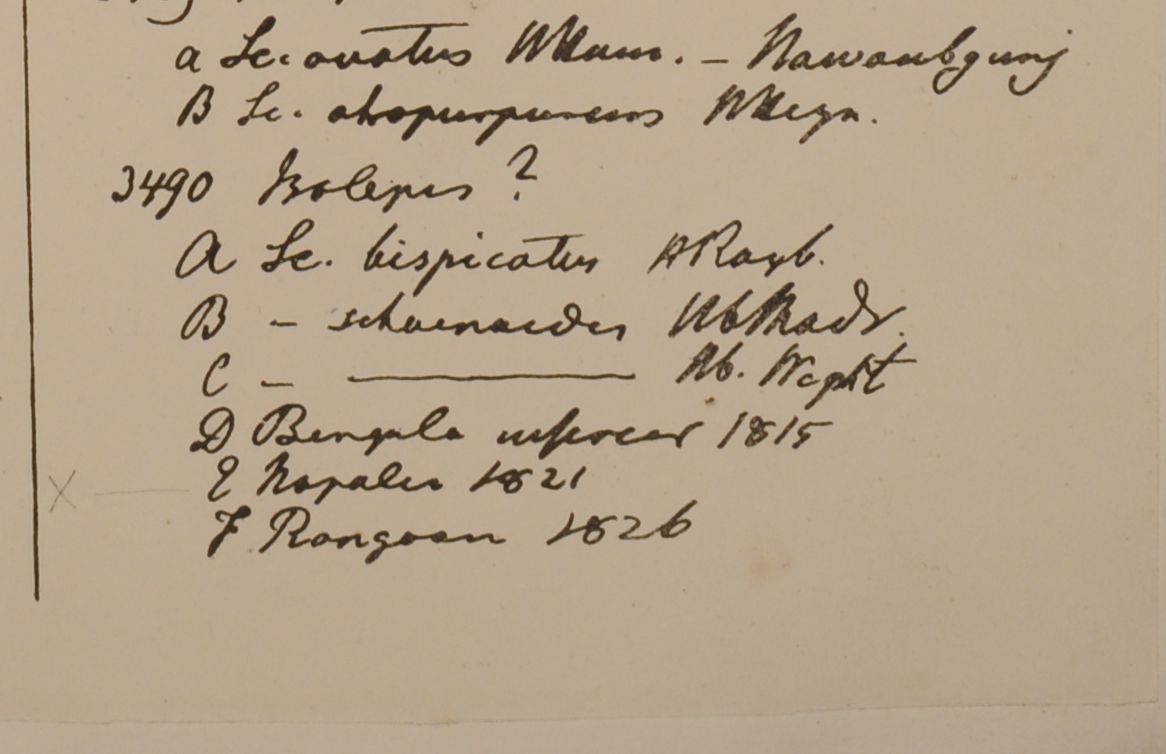 a Sc. ovatus HHam. – Nawaubgunj
B Sc. atropurpureus
3490 Isolepis ?
A Sc. bispicatus HRoxb.
B – schoenoides Hb Madr.
C – ——— Hb. Wight
D Bengala 1815
E Napalia 1821
F Rangoon 1826